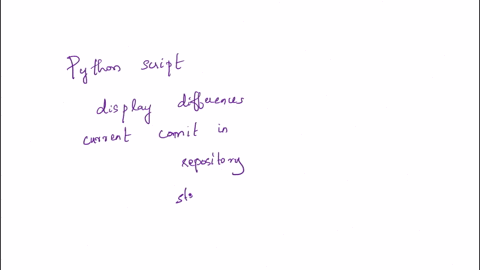 Python script
display differences
current comit in
repository